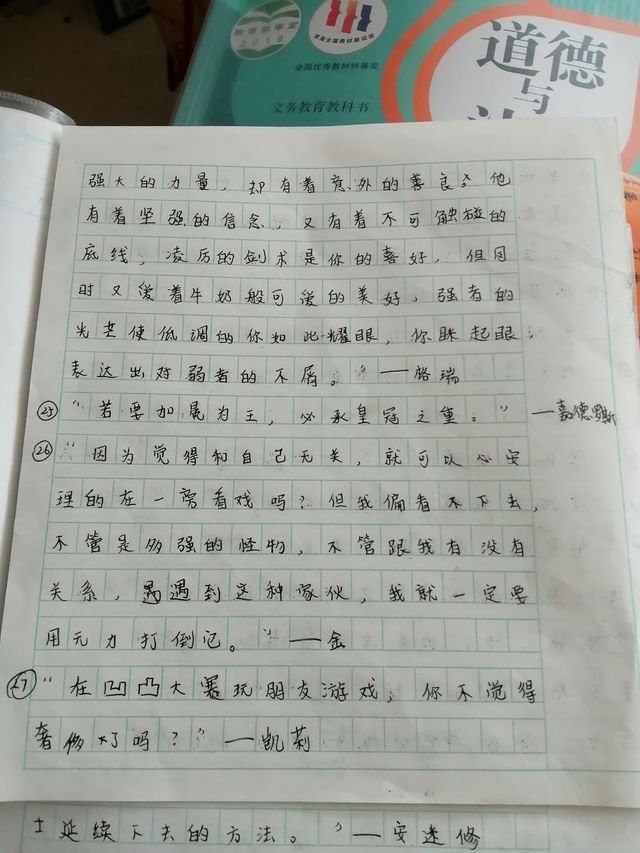 教育部审定
2019
首届全国教材建设奖
全国优秀教材特等奖
义务教育教科书
道德
与
强大的力量，却有着意外的善良。他
有着坚强的信念，又有着不可触碰的
底线，凌厉的剑术是你的喜好，但同
时又爱着牛奶般可爱的美好，强者的
光芒使低调的你如此耀眼，你眯起眼，
表达出对弱者的不屑。”——格瑞
㉕“若要加冕为王，必承皇冠之重。”——嘉德罗斯
㉖“因为觉得和自己无关，就可以心安
理的在一旁看戏吗？但我偏看不下去，
不管是多强的怪物，不管跟我有没有
关系，遇到这种家伙，我就一定要
用元力打倒记。”——金
㉗“在凹凸大赛玩朋友游戏，你不觉得
奢侈了吗？”——凯莉
延续下去的方法。”——安迷修